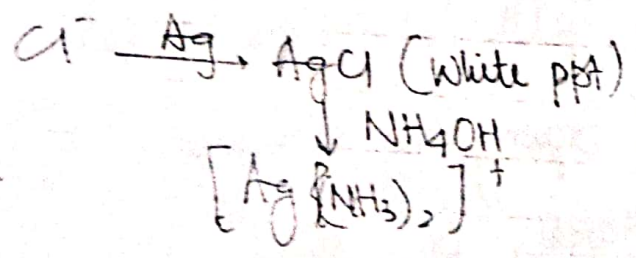 Cl⁻ —Ag→ AgCl (White ppt)
↓ NH4OH
[Ag(NH3)2]⁺